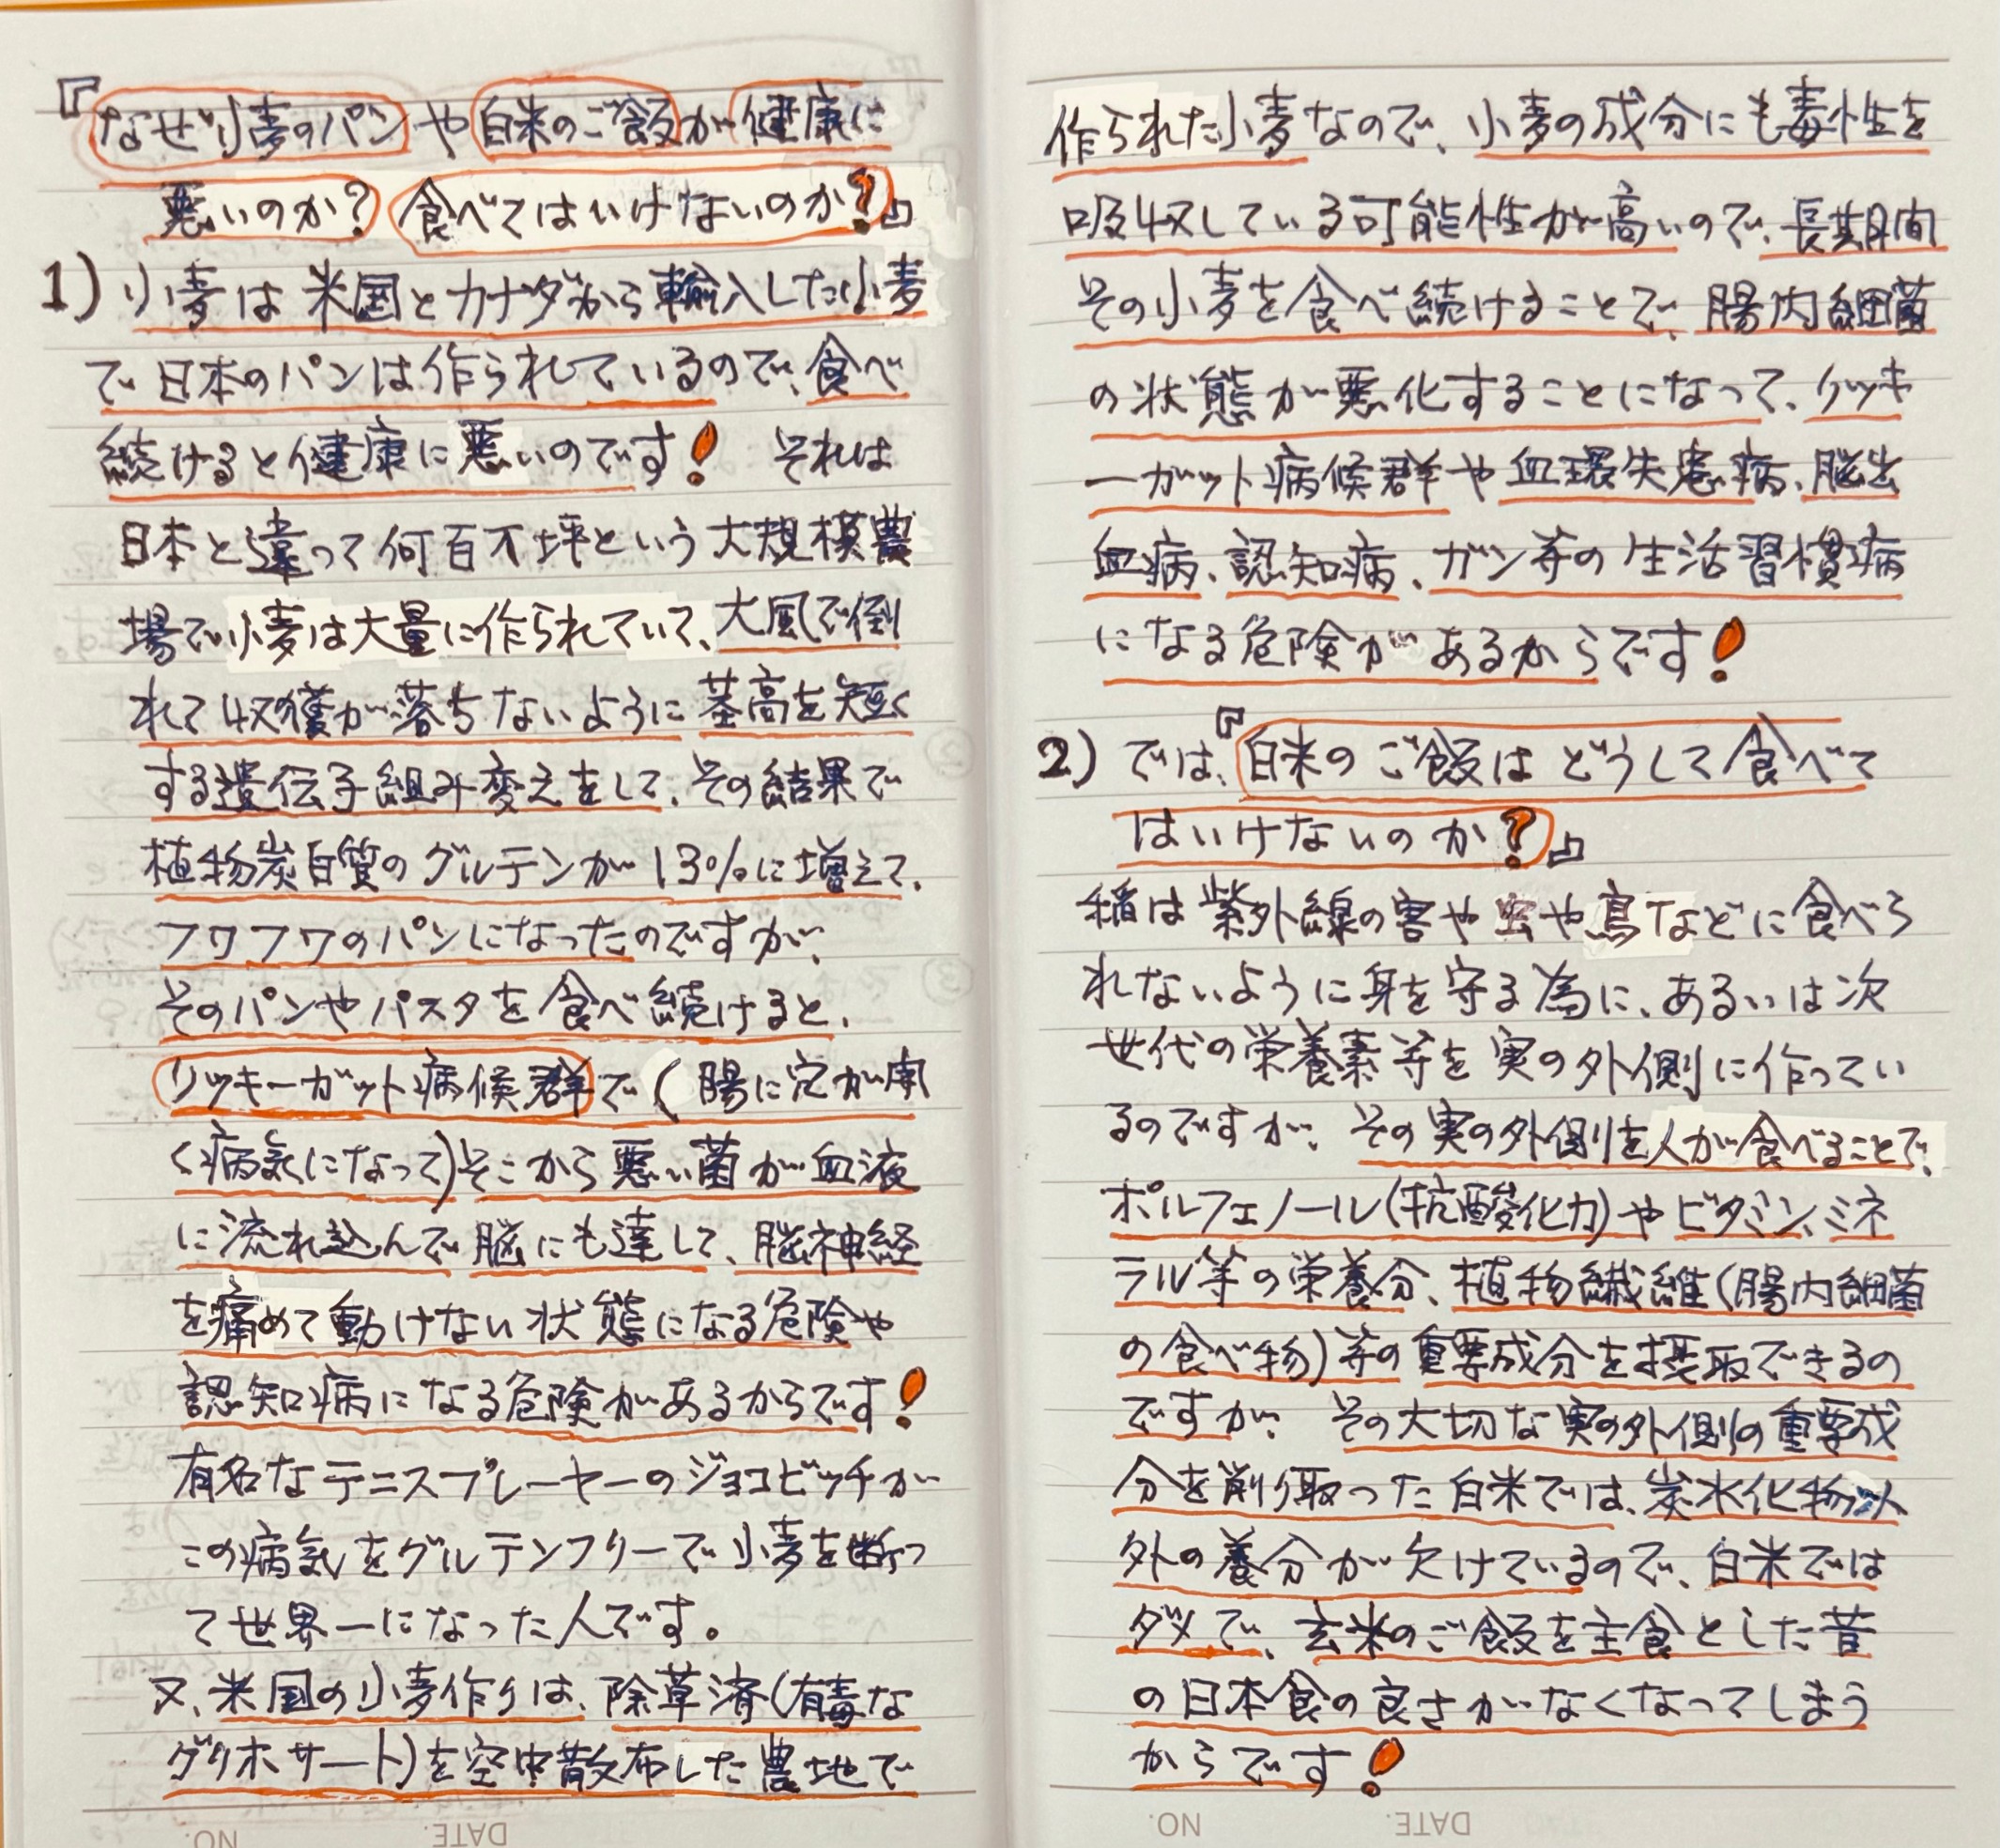 『なぜ小麦のパンや白米のご飯が健康に
悪いのか？食べてはいけないのか？』
1）小麦は米国とカナダから輸入した小麦
で日本のパンは作られているので、食べ
続けると健康に悪いのです！ それは
日本と違って何百万坪という大規模農
場で小麦は大量に作られていて、大風で倒
れて収獲が落ちないように茎高を短く
する遺伝子組み変えをして、その結果で
植物炭白質のグルテンが13％に増えて、
フワフワのパンになったのですが、
そのパンやパスタを食べ続けると、
リッキーガット病候群で（腸に穴が開
く病気になって）そこから悪い菌が血液
に流れ込んで脳にも達して、脳神経
を痛めて動けない状態になる危険や
認知病になる危険があるからです！
有名なテニスプレーヤーのジョコビッチが
この病気をグルテンフリーで小麦を断っ
て世界一になった人です。
又、米国の小麦作りは、除草済（有毒な
グリホサート）を空中散布した農地で
作られた小麦なので、小麦の成分にも毒性を
吸収している可能性が高いので、長期間
その小麦を食べ続けることで、腸内細菌
の状態が悪化することになって、リッキ
ーガット病候群や血環失患病、脳出
血病、認知病、ガン等の生活習慣病
になる危険があるからです！
2）では、『白米のご飯はどうして食べて
はいけないのか？』
稲は紫外線の害や虫や鳥などに食べら
れないように身を守る為に、あるいは次
世代の栄養素等を実の外側に作ってい
るのですが、その実の外側を人が食べることで、
ポルフェノール（抗酸化力）やビタミン、ミネ
ラル等の栄養分、植物繊維（腸内細菌
の食べ物）等の重要成分を摂取できるの
ですが、その大切な実の外側の重要成
分を削り取った白米では、炭水化物以
外の養分が欠けているので、白米では
ダメで、玄米のご飯を主食とした昔
の日本食の良さがなくなってしまう
からです！
NO.
DATE.
NO.
DATE.